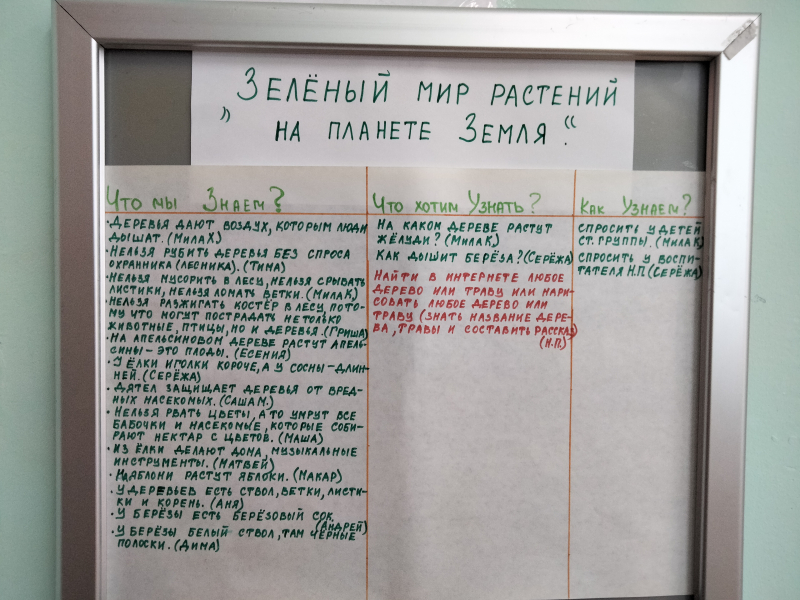 „Зелёный мир растений
на планете Земля“.
Что мы Знаем?
·Деревья дают воздух, которым люди
дышат. (Мила Х.)
·Нельзя рубить деревья без спроса
охранника (лесника). (Тима)
·Нельзя мусорить в лесу, нельзя срывать
листики, нельзя ломать ветки. (Мила К.)
·Нельзя разжигать костёр в лесу, пото-
му что могут пострадать не только
животные, птицы, но и деревья. (Гриша)
·На апельсиновом дереве растут апель-
сины – это плоды. (Есения)
·У ёлки иголки короче, а у сосны – длин-
ней. (Серёжа)
·Дятел защищает деревья от вред-
ных насекомых. (Саша М.)
·Нельзя рвать цветы, а то умрут все
бабочки и насекомые, которые соби-
рают нектар с цветов. (Маша)
·Из ёлки делают дома, музыкальные
инструменты. (Матвей)
·На яблони растут яблоки. (Макар)
·У деревьев есть ствол, ветки, листи-
ки и корень. (Аня)
·У берёзы есть берёзовый сок.
(Андрей)
·У берёзы белый ствол, там чёрные
полоски. (Дима)
Что хотим Узнать?
На каком дереве растут
жёлуди? (Мила К.)
Как дышит берёза? (Серёжа)
Найти в интернете любое
дерево или траву или нари-
совать любое дерево или
траву (знать название дере-
ва, травы и составить рассказ)
(Н.П.)
Как Узнаем?
Спросить у детей
ст. группы. (Мила К.)
Спросить у воспи-
тателя Н.П. (Серёжа)